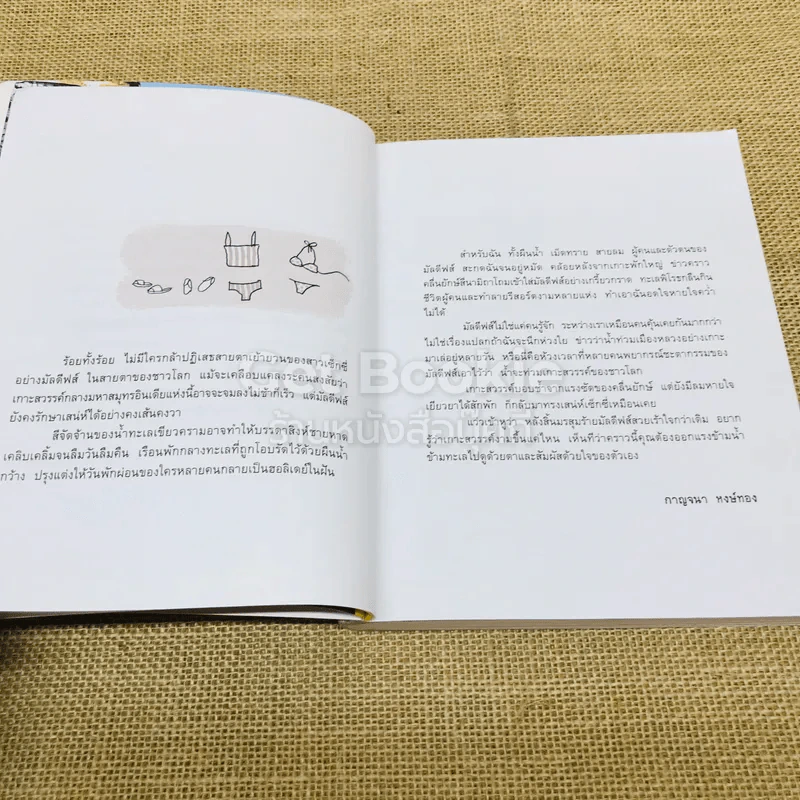 ร้อยทั้งร้อย ไม่มีใครกล้าปฏิเสธสายตาเย้ายวนของสาวเซ็กซี่
อย่างมัลดีฟส์ ในสายตาของชาวโลก แม้จะเคลือบแคลงระคนสงสัยว่า
เกาะสวรรค์กลางมหาสมุทรอินเดียแห่งนี้อาจจะจมลงไม่ช้าก็เร็ว แต่มัลดีฟส์
ยังคงรักษาเสน่ห์ได้อย่างคงเส้นคงวา
สีจัดจ้านของน้ำทะเลเขียวครามอาจทำให้บรรดาสิงห์ชายหาด
เคลิบเคลิ้มจนลืมวันลืมคืน เรือนพักกลางทะเลที่ถูกโอบรัดไว้ด้วยผืนน้ำ
กว้าง ปรุงแต่งให้วันพักผ่อนของใครหลายคนกลายเป็นฮอลิเดย์ในฝัน
สำหรับฉัน ทั้งผืนน้ำ เม็ดทราย สายลม ผู้คนและตัวตนของ
มัลดีฟส์ สะกดฉันจนอยู่หมัด คล้อยหลังจากเกาะพักใหญ่ ข่าวคราว
คลื่นยักษ์สึนามิถาโถมเข้าใส่มัลดีฟส์อย่างเกรี้ยวกราด ทะเลพิโรธกลืนกิน
ชีวิตผู้คนและทำลายรีสอร์ตงามหลายแห่ง ทำเอาฉันอดใจหายใจคว่ำ
ไม่ได้
มัลดีฟส์ไม่ใช่แค่คนรู้จัก ระหว่างเราเหมือนคนคุ้นเคยกันมากกว่า
ไม่ใช่เรื่องแปลกถ้าฉันจะนึกห่วงใย ข่าวว่าน้ำท่วมเมืองหลวงอย่างเกาะ
มาเล่อยู่หลายวัน หรือนี่คือห้วงเวลาที่หลายคนพยากรณ์ชะตากรรมของ
มัลดีฟส์เอาไว้ว่า น้ำจะท่วมเกาะสวรรค์ของชาวโลก
เกาะสวรรค์บอบช้ำจากแรงซัดของคลื่นยักษ์ แต่ยังมีลมหายใจ
เยียวยาได้สักพัก ก็กลับมาทรงเสน่ห์เซ็กซี่เหมือนเคย
แว่วเข้าหูว่า หลังสิ้นมรสุมร้ายมัลดีฟส์สวยเร้าใจกว่าเดิม อยาก
รู้ว่าเกาะสวรรค์งามขึ้นแค่ไหน เห็นทีว่าคราวนี้คุณต้องออกแรงข้ามน้ำ
ข้ามทะเลไปดูด้วยตาและสัมผัสด้วยใจของตัวเอง
กาญจนา หงษ์ทอง